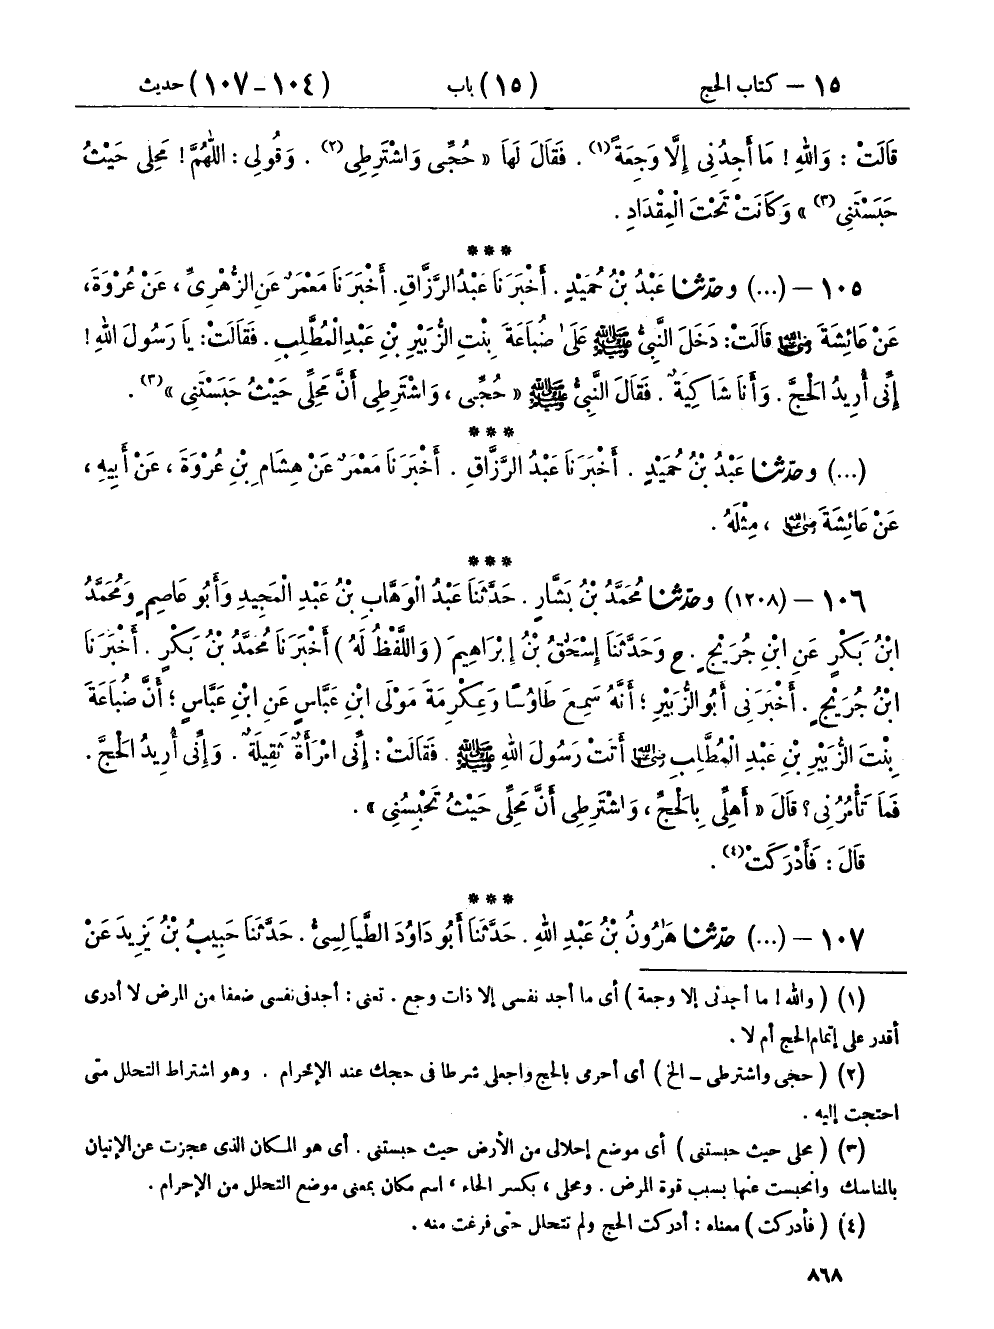 ١٥ – كتاب الحج (١٥) باب (١٠٤ – ١٠٧) حديث
قَالَتْ : وَاللهِ ! مَا أَجِدُنِى إِلَّا وَجِعَةً(١) . فَقَالَ لَهَا « حُجِّى وَاشْتَرِطِى(٢) . وَقُولِى : اللّٰهُمَّ ! مَحِلِّى حَيْثُ
حَبَسْتَنِى(٣) » وَكَانَتْ تَحْتَ الْمِقْدَادِ .
***
١٠٥ – (...) وحدّثنا عَبْدُ بْنُ حُمَيْدٍ . أَخْبَرَنَا عَبْدُ الرَّزَّاقِ. أَخْبَرَنَا مَعْمَرٌ عَنِ الزُّهْرِىِّ ، عَنْ عُرْوَةَ،
عَنْ عَائِشَةَ رضي الله عنها قَالَتْ: دَخَلَ النَّبِىُّ ﷺ عَلَىٰ ضُبَاعَةَ بِنْتِ الزُّبَيْرِ بْنِ عَبْدِ الْمُطَّلِبِ . فَقَالَتْ: يَا رَسُولَ اللهِ !
إِنِّى أُرِيدُ الْحَجَّ . وَأَنَا شَاكِيَةٌ . فَقَالَ النَّبِىُّ ﷺ « حُجِّى ، وَاشْتَرِطِى أَنَّ مَحِلِّى حَيْثُ حَبَسْتَنِى »(٣) .
***
(...) وحدّثنا عَبْدُ بْنُ حُمَيْدٍ . أَخْبَرَنَا عَبْدُ الرَّزَّاقِ . أَخْبَرَنَا مَعْمَرٌ عَنْ هِشَامِ بْنِ عُرْوَةَ ، عَنْ أَبِيهِ ،
عَنْ عَائِشَةَ رضي الله عنها ، مِثْلَهُ .
***
١٠٦ – (١٢٠٨) وحدّثنا مُحَمَّدُ بْنُ بَشَّارٍ . حَدَّثَنَا عَبْدُ الْوَهَّابِ بْنُ عَبْدِ الْمَجِيدِ وَأَبُو عَاصِمٍ وَمُحَمَّدُ
ابْنُ بَكْرٍ عَنِ ابْنِ جُرَيْجٍ . ح وَحَدَّثَنَا إِسْحَٰقُ بْنُ إِبْرَاهِيمَ ( وَاللَّفْظُ لَهُ ) أَخْبَرَنَا مُحَمَّدُ بْنُ بَكْرٍ . أَخْبَرَنَا
ابْنُ جُرَيْجٍ . أَخْبَرَنِى أَبُو الزُّبَيْرِ ؛ أَنَّهُ سَمِعَ طَاوُسًا وَعِكْرِمَةَ مَوْلَى ابْنِ عَبَّاسٍ عَنِ ابْنِ عَبَّاسٍ ؛ أَنَّ ضُبَاعَةَ
بِنْتَ الزُّبَيْرِ بْنِ عَبْدِ الْمُطَّلِبِ رضي الله عنها أَتَتْ رَسُولَ اللهِ ﷺ . فَقَالَتْ : إِنِّى امْرَأَةٌ ثَقِيلَةٌ . وَإِنِّى أُرِيدُ الْحَجَّ .
فَمَا تَأْمُرُنِى؟ قَالَ « أَهِلِّى بِالْحَجِّ ، وَاشْتَرِطِى أَنَّ مَحِلِّى حَيْثُ تَحْبِسُنِى » .
قَالَ : فَأَدْرَكَتْ(٤) .
***
١٠٧ – (...) حدّثنا هَٰرُونُ بْنُ عَبْدِ اللهِ . حَدَّثَنَا أَبُو دَاوُدَ الطَّيَالِسِىُّ . حَدَّثَنَا حَبِيبُ بْنُ يَزِيدَ عَنْ
(١) ( والله ! ما أجدنى إلا وجعة ) أى ما أجد نفسى إلا ذات وجع . تعنى : أجد فى نفسى ضعفا من المرض لا أدرى
أقدر على إتمام الحج أم لا .
(٢) ( حجى واشترطى – الخ ) أى أحرمى بالحج واجعلى شرطا فى حجك عند الإحرام . وهو اشتراط التحلل متى
احتجت إليه .
(٣) ( محلى حيث حبستنى ) أى موضع إحلالى من الأرض حيث حبستنى . أى هو المكان الذى عجزت عن الإتيان
بالمناسك وانحبست عنها بسبب قوة المرض . ومحلى ، بكسر الحاء ، اسم مكان بمعنى موضع التحلل من الإحرام .
(٤) ( فأدركت ) معناه : أدركت الحج ولم تتحلل حتى فرغت منه .
٨٦٨